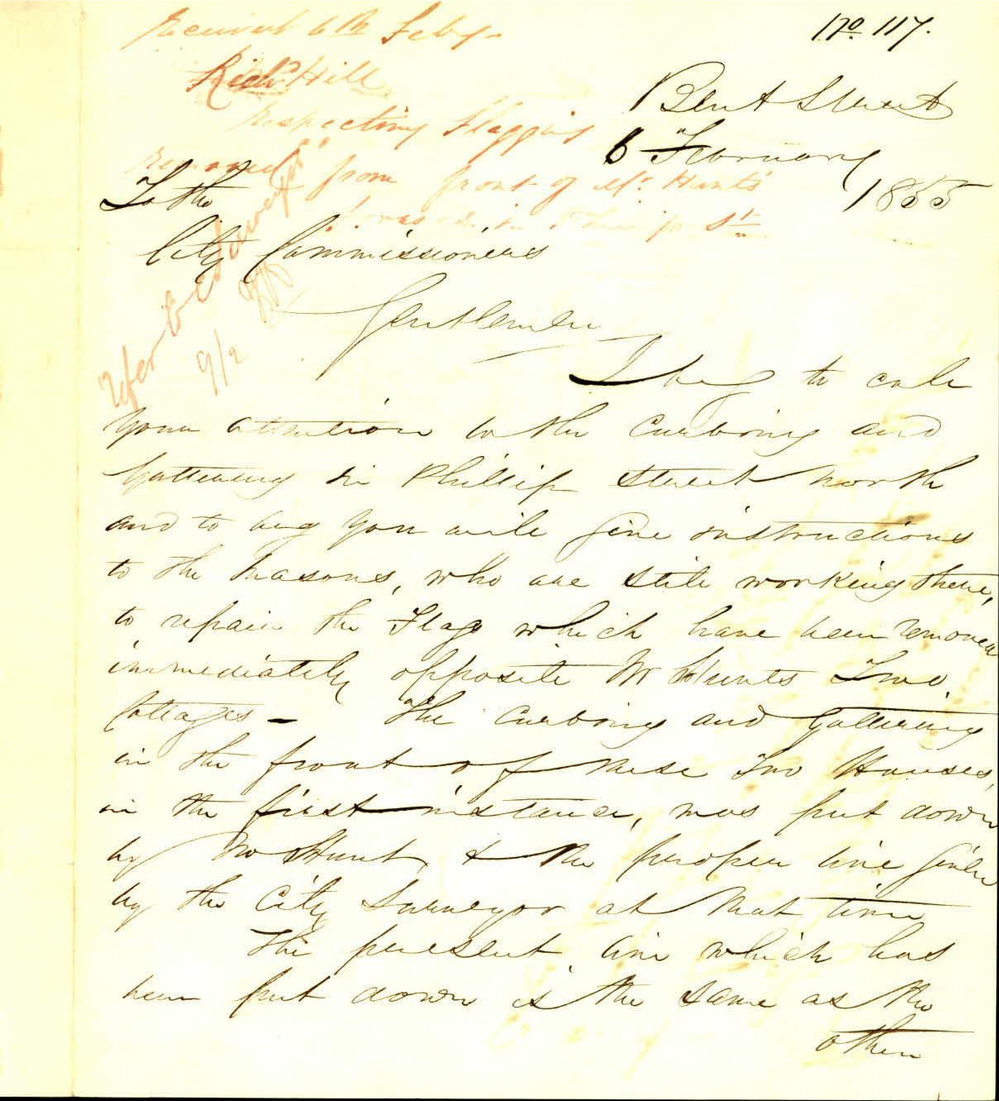 No. 117.
Received 6th Feby
Richd Hill
respecting flagging
removed from front of Mr. Hunts
houses in Phillip St
Bent Street
6 February
1855
To the
City Commissioners
Refer to City Surveyor
9/2
Gentlemen
I beg to call
your attention to the Curbing and
Guttering in Phillip Street North
and to beg you will give instructions
to the Masons, who are still working there,
to repair the Flags which have been removed
immediately opposite Mr Hunts Two
Cottages - The Curbing and Guttering
in the front of these Two Houses,
in the first instance, was put down
by Mr Hunt, & the proper line given
by the City Surveyor at that time
The present line which has
been put down is the same as the
other